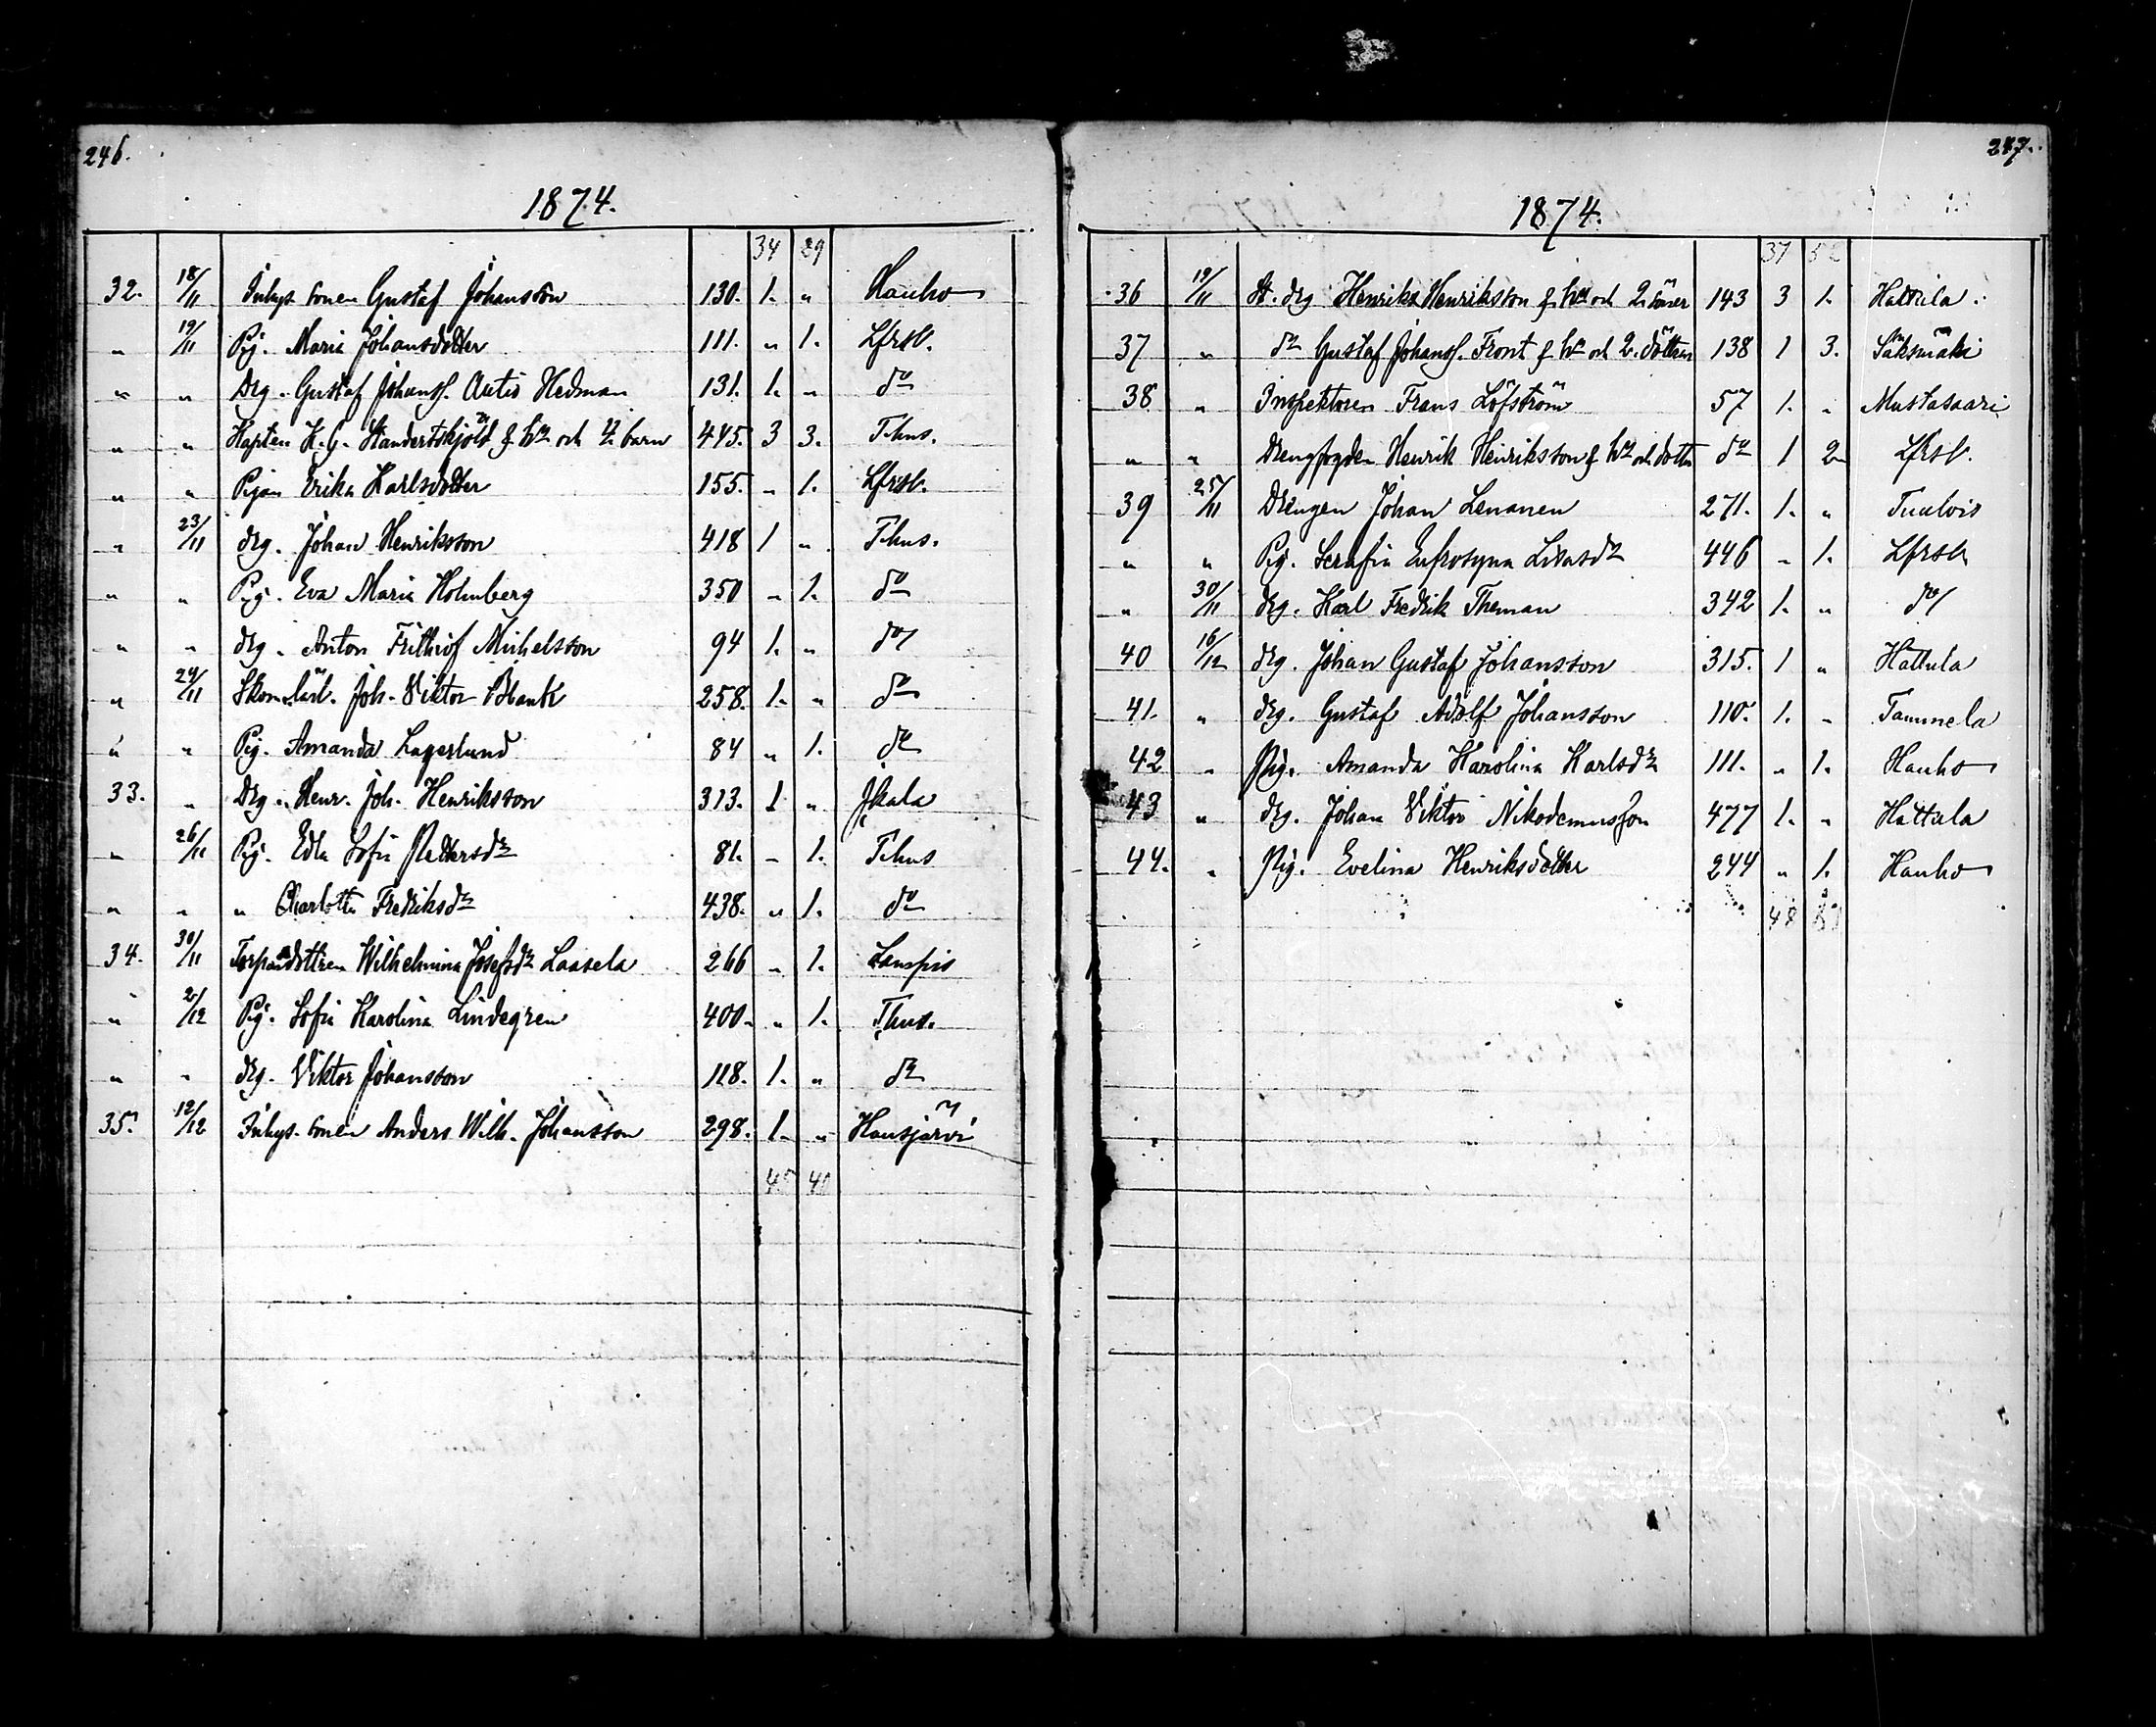 246.
1874.
34 29
32. 18/11 Inhys. sonen Gustaf Johansson 130. 1. " Hauho
" 19/11 Pig. Maria Johansdotter 111. " 1. Lfrsb.
" " Drg. Gustaf Johanss. Autio Hedman 131. 1. " do
" " Kapten K. G. Standertskjöld f. hu och 4 barn 445. 3 3. T.hus.
" " Pigan Erika Karlsdotter 155. " 1. Lfrsb.
" 23/11 drg. Johan Henriksson 418 1 " T.hus.
" " Pig. Eva Maria Holmberg 350 " 1. do
" " drg. Anton Frithiof Michelsson 94 1. " do
" 24/11 Skom. lärl. Joh. Viktor Blank 258. 1. " do
" " Pig. Amanda Lagerlund 84 " 1. do
33. " Drg. Henr. Joh. Henriksson 313. 1 " Jkala
" 26/11 Pig. Edla Sofia Pettersdr 81. " 1. T.hus
" " " Charlotta Fredriksdr 438. " 1. do
34. 30/11 Torparedottren Wilhelmina Josefsdr Laasela 266 " 1. Lampis
" 2/12 Pig. Sofia Karolina Lindegren 400. " 1. T.hus.
" " drg. Viktor Johansson 118. 1. " do
35. 12/12 Inhys. sonen Anders Wilh. Johansson 298. 1. " Hausjärvi
45 40
247.
1874.
37 52
36 19/11 St. drg Henrik Henriksson f. hu och 2 söner 143 3 1. Hattula
37 " do Gustaf Johanss. Front f. hu och 2. döttrar 138 1 3. Sääksmäki
38 " Inspektoren Frans Löfström 57 1. " Mustasaari
" " Drengfogden Henrik Heinriksson f. hu och dotter do 1 2 Lfrsb.
39 25/11 Drengen Johan Lenanen 271. 1. " Tuulois
" " Pig. Serafia Eufrosyna Lisasdr 446 " 1. Lfrsb.
" 30/11 drg. Karl Fredrik Theman 342 1. " do
40 16/12 drg. Johan Gustaf Johansson 315. 1 " Hattula
41. " drg. Gustaf Adolf Johansson 110. 1. " Tammela
42 " Pig. Amanda Karolina Karlsdr 111. " 1. Hauho
43 " drg. Johan Viktor Nikodemusson 477 1. " Hattula
44. " Pig. Evelina Henriksdotter 244 " 1. Hauho
48